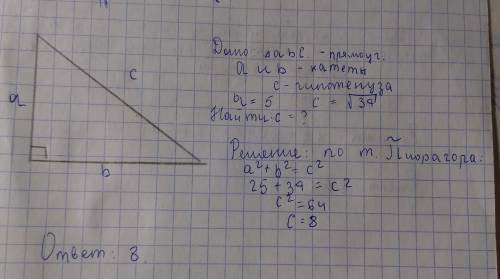 Дано △abc - прямоуг.
a и b - катеты
c - гипотенуза
a = 5 c = √39
Найти c = ?
a
c
b
Решение: по т. Пифрагора:
a² + b² = c²
25 + 39 = c²
c² = 64
c = 8
Ответ: 8.